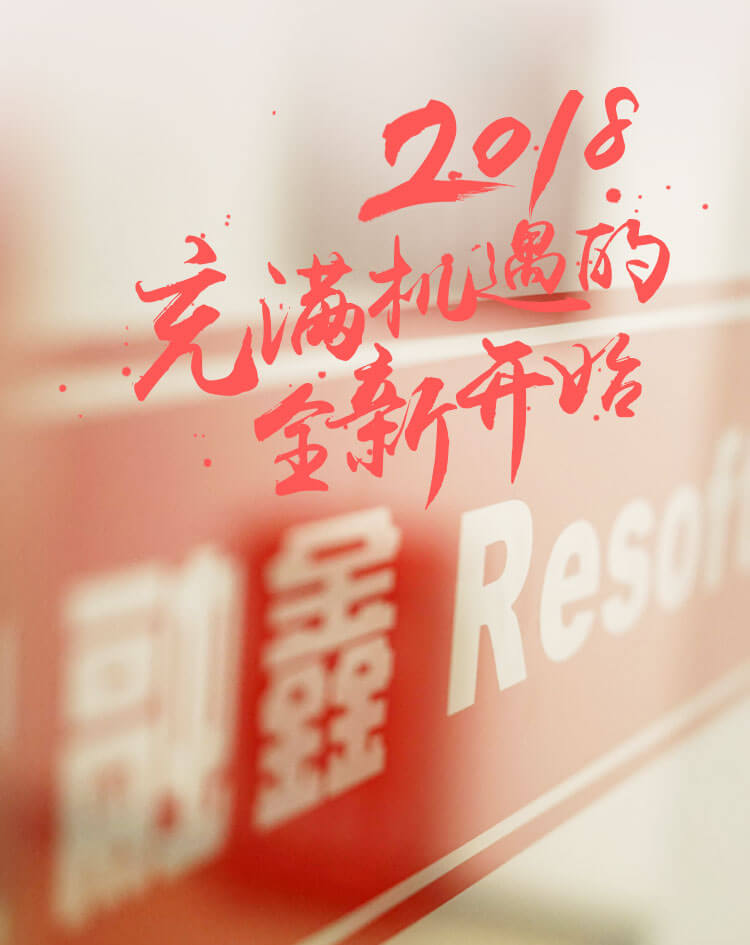 2018
充满机遇的
全新开始
融鑫 Resoft